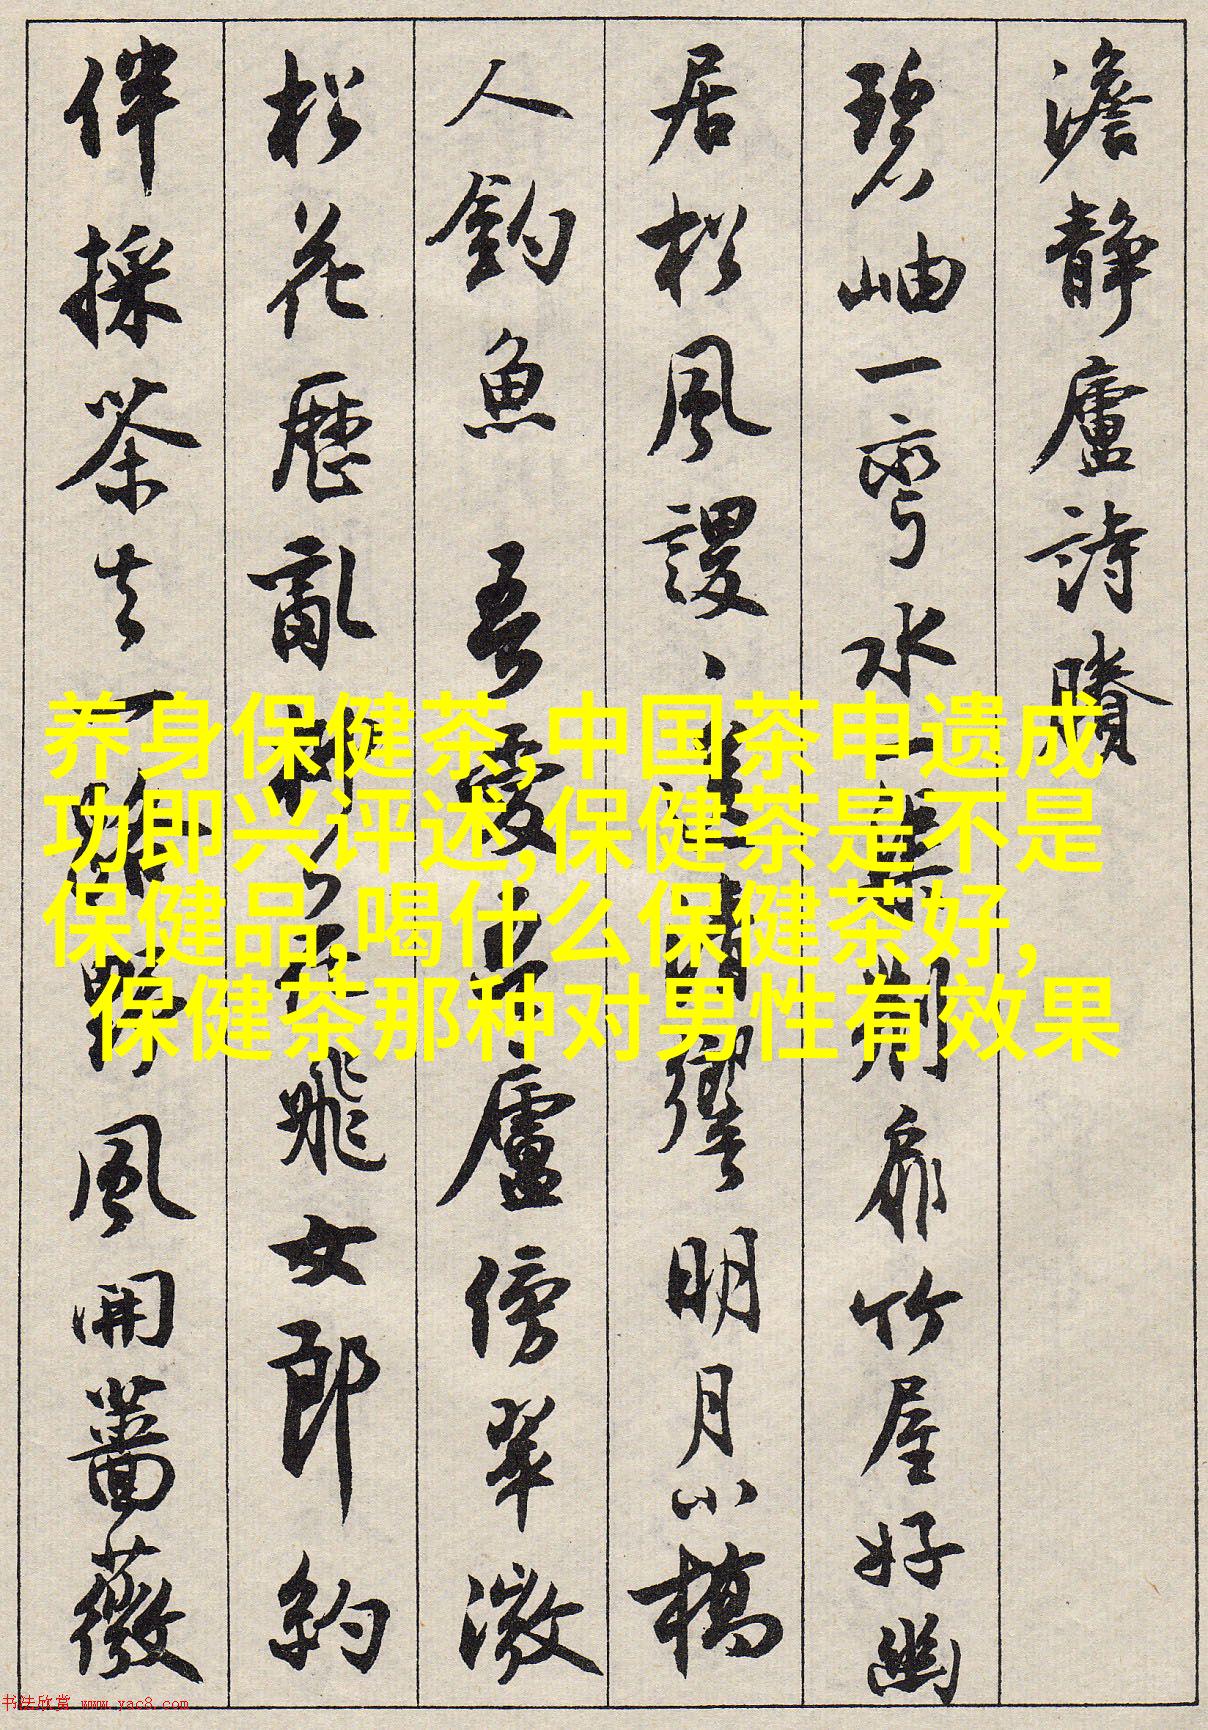 澹靜廬詩賸
碧岫一彎水一荆扉竹屋好幽
居松風謖、清響明月小橋
人釣魚 吾愛吾廬傍翠微
松花歷亂飛女郎約
伴採茶去一路野風開薔薇
养身保健茶,中国茶申遗成
功即兴评述,保健茶是不是
保健品,喝什么保健茶好,
保健茶那种对男性有效果
书法欣赏 www.yac8.com